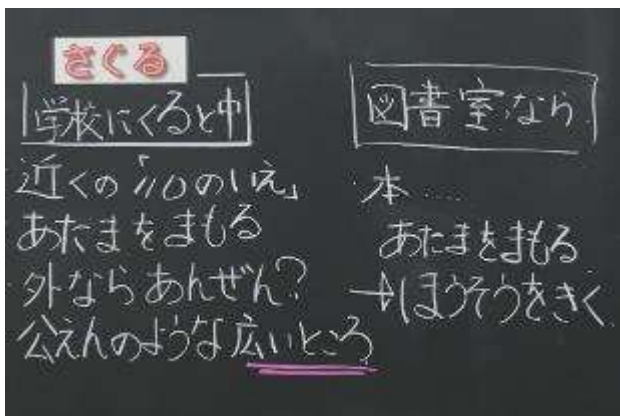 さぐる
学校にくると中
近くの「110のいえ」
あたまをまもる
外ならあんぜん?
公えんのような広いところ
図書室なら
本……
あたまをまもる
→ほうそうをきく